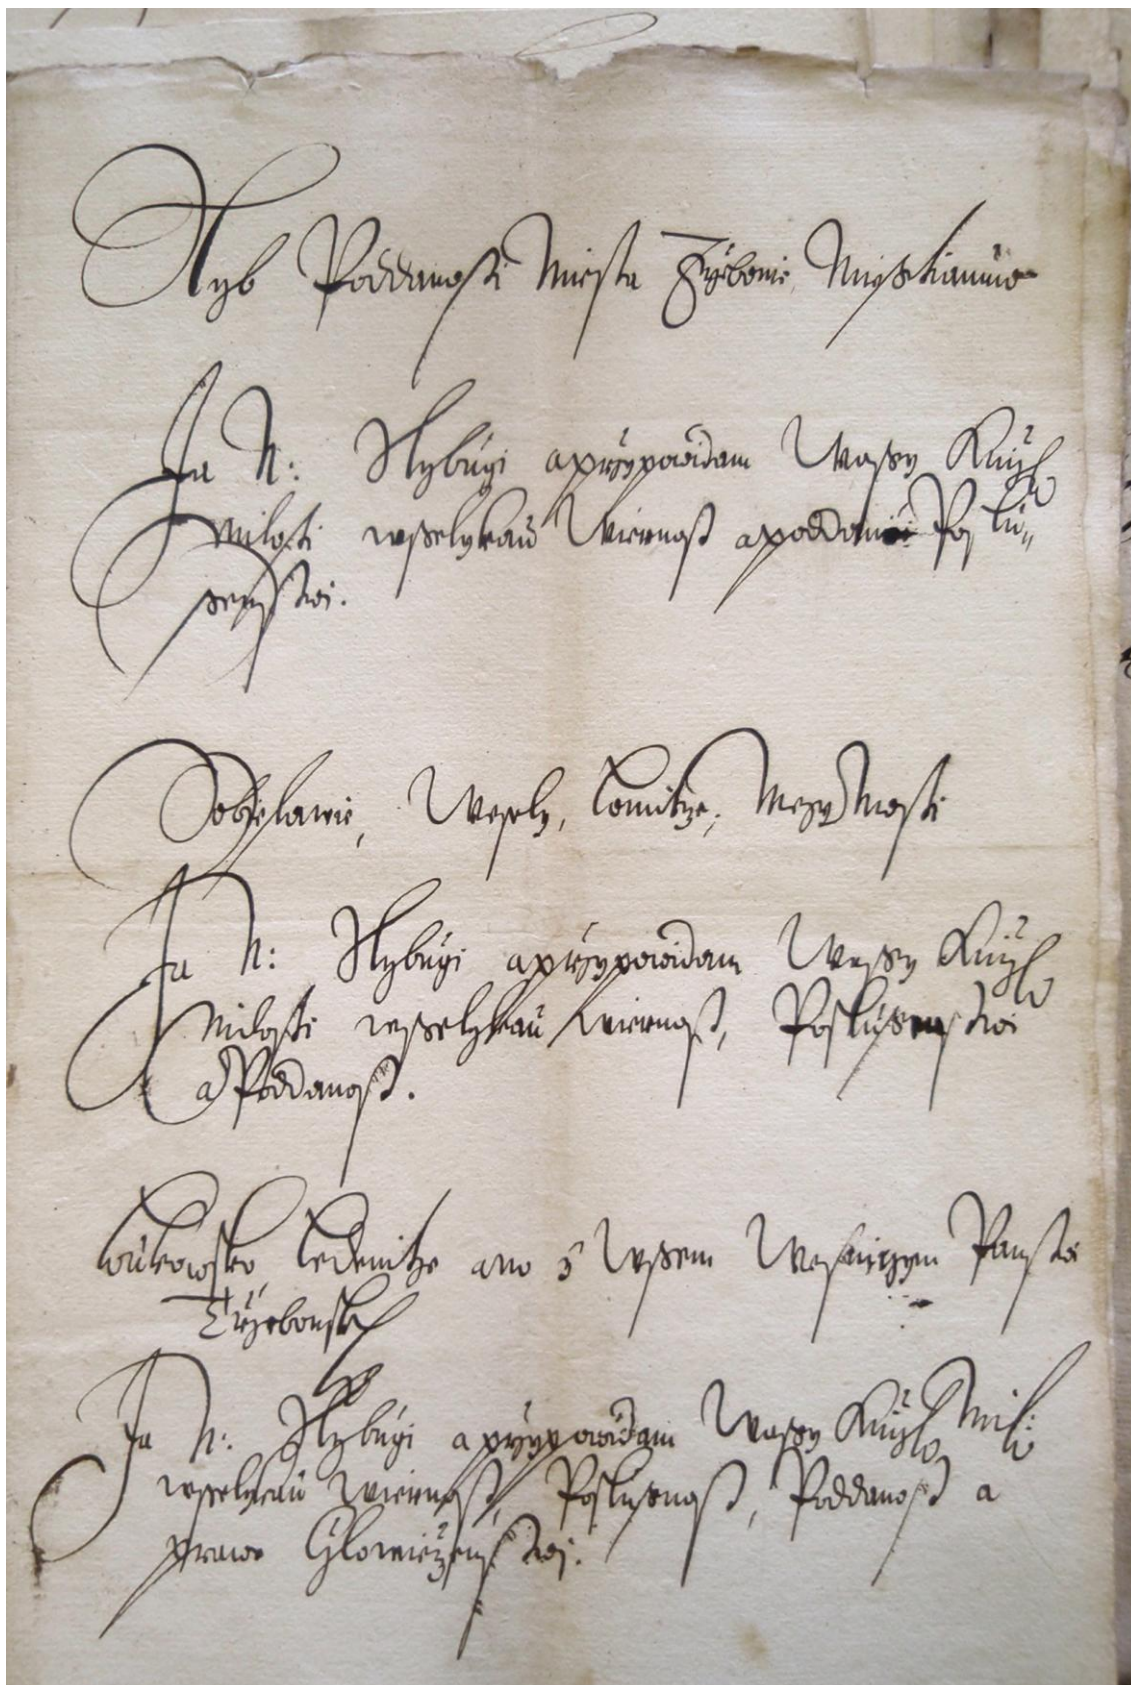 Slyb Poddanosti Miesta Trzebonie Miesstianuo
Ja N: Slybugi a przypowidam Wassy Knijz
Milosti wsselykau Wiernost a poddanii Poslu„
ssenstwi.
Sobieslawie, Wesely, Lomnitze, Mezymosti
Ja N: Slybugi a przypowidam Wassy Knijz
Milosti wsselykau wiernost, Poslussenstwi
a Poddanost.
Ledenitze ano y Wssem Wesniczym Panstwi
Trzebonsk
Ja N: Slybugi a przypowidam Wassy Knijz Mil:
wsselykau wiernost, Poslussnost, Poddanost a
prawo Cžlowieczenstwi.